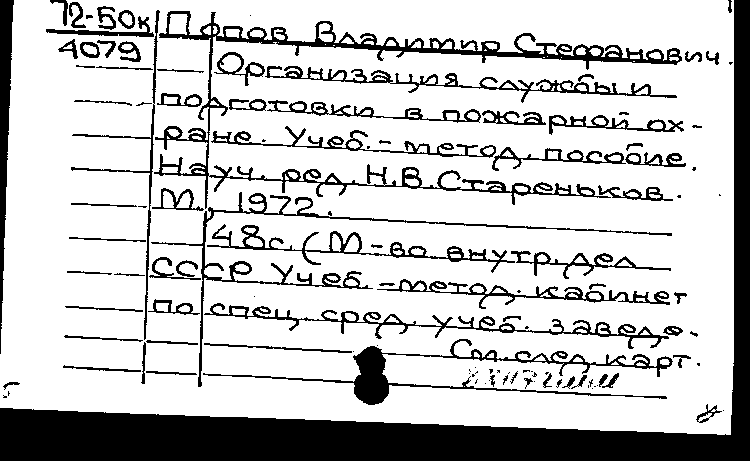 72-50к Попов, Владимир Стефанович.
4079 Организация службы и
подготовки в пожарной ох-
ране. Учеб.-метод. пособие.
Науч. ред. Н.В. Стареньков.
М., 1972.
48с. (М-во внутр. дел
СССР Учеб.-метод. кабинет
по спец. сред. учеб. заведе-
См. след. карт.